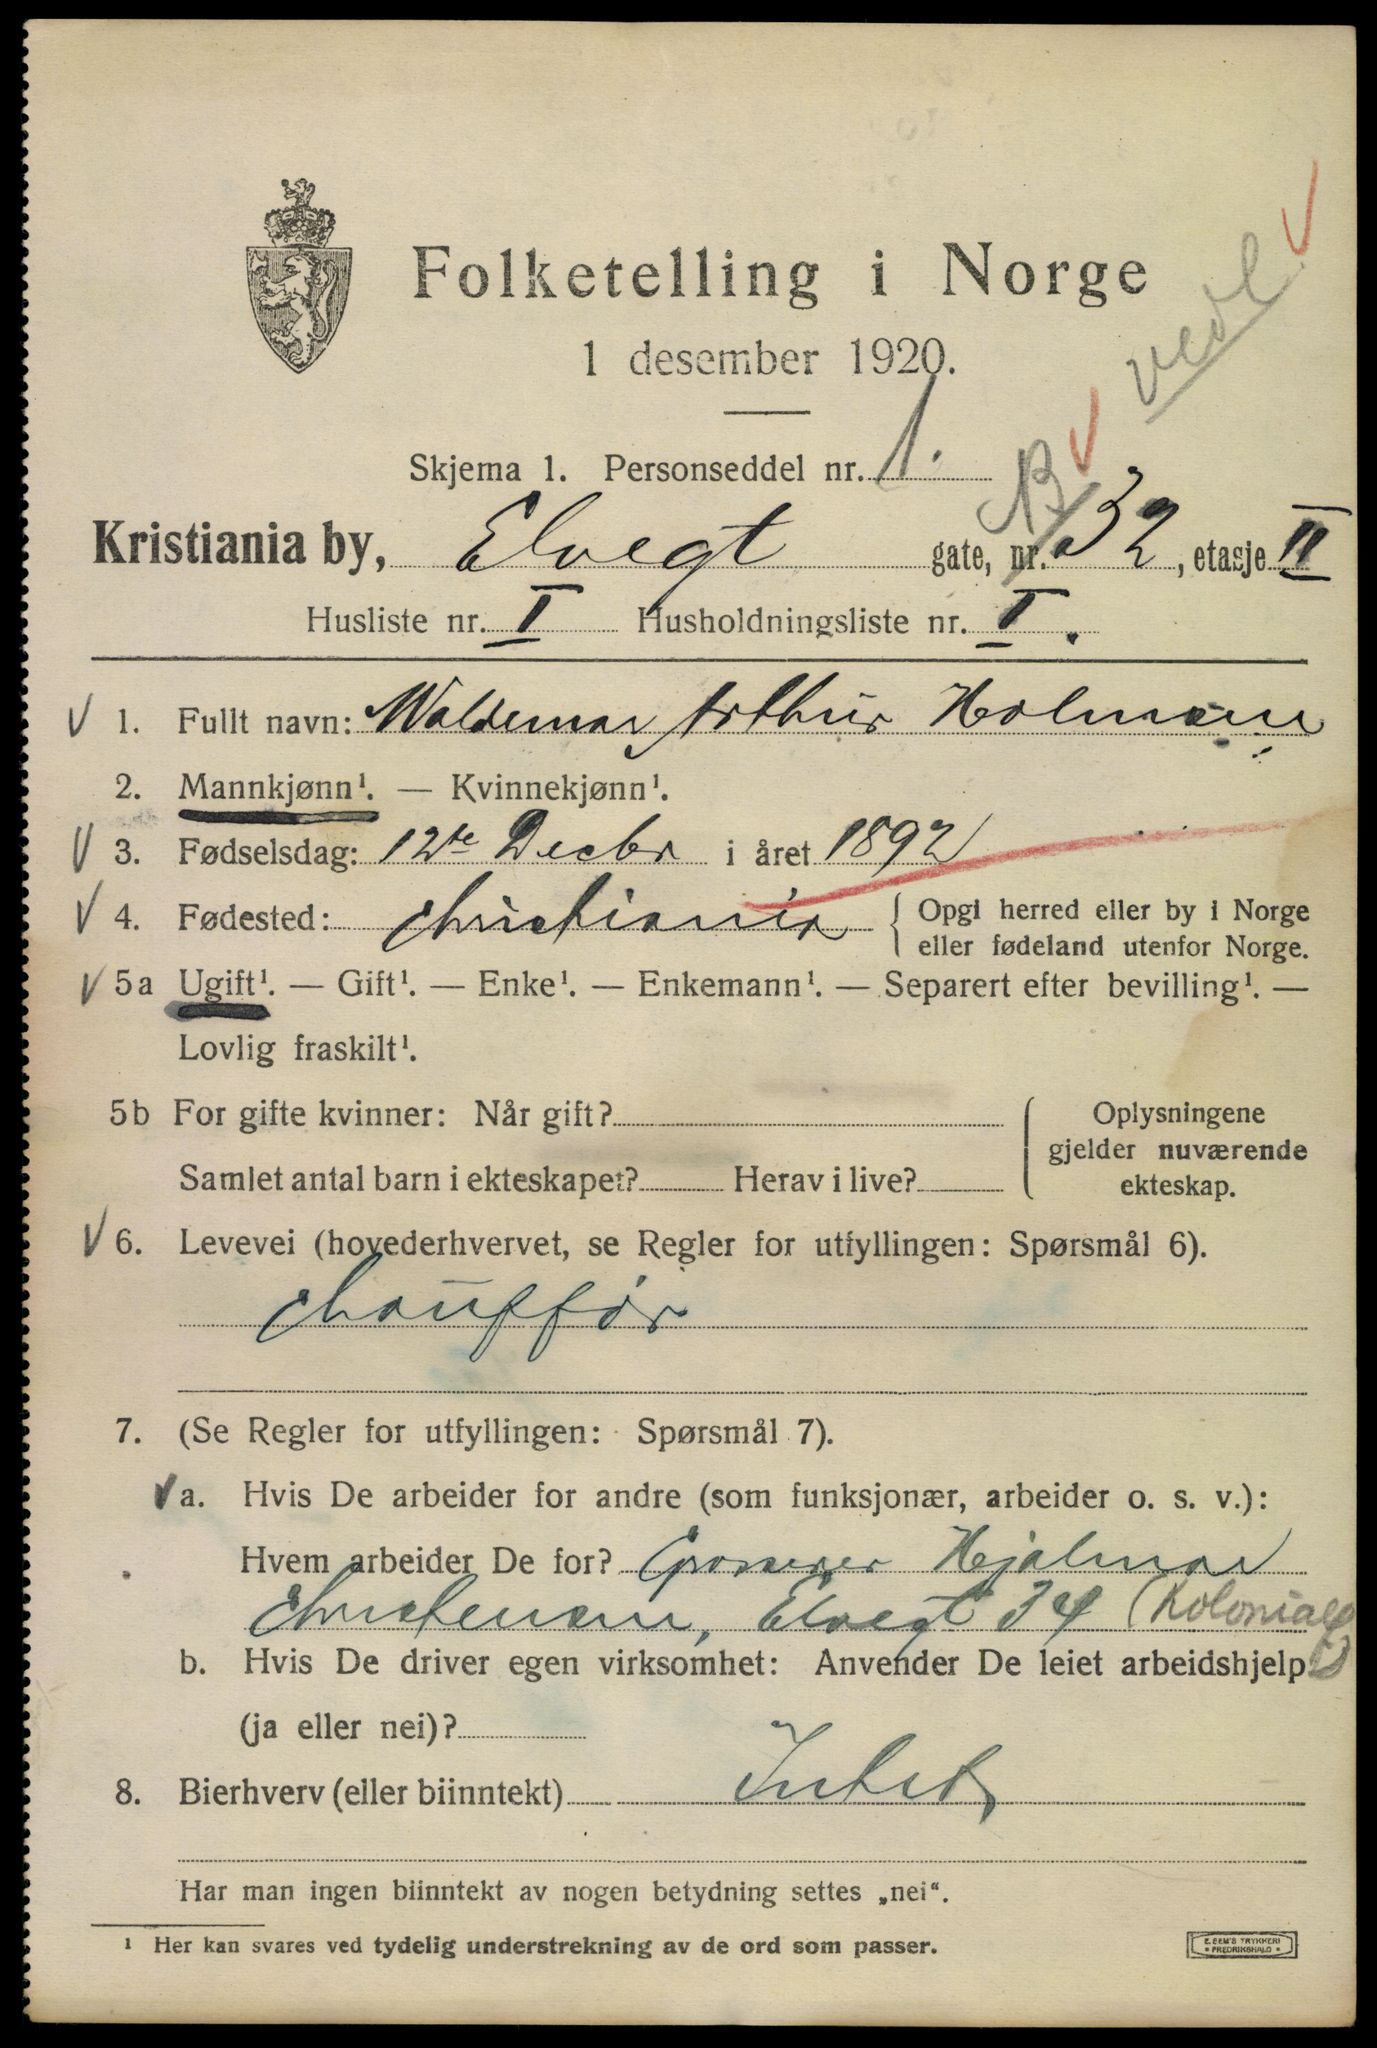 Folketelling i Norge
vedl
1 desember 1920.
Skjema 1. Personseddel nr. 1.
Kristiania by, Elvegt gate, nr. 32, etasje II
Husliste nr. I Husholdningsliste nr. I.
1. Fullt navn: Waldemar Arthur Holmsen
2. Mannkjønn¹. — Kvinnekjønn¹.
3. Fødselsdag: 12te Decbr i året 1892
4. Fødested: Christiania { Opgi herred eller by i Norge
eller fødeland utenfor Norge.
5a Ugift¹. — Gift¹. — Enke¹. — Enkemann¹. — Separert efter bevilling¹. —
Lovlig fraskilt¹.
5b For gifte kvinner: Når gift?
Samlet antal barn i ekteskapet? Herav i live?
Oplysningene
gjelder nuværende
ekteskap.
6. Levevei (hovederhvervet, se Regler for utfyllingen: Spørsmål 6).
Chauffør
7. (Se Regler for utfyllingen: Spørsmål 7).
a. Hvis De arbeider for andre (som funksjonær, arbeider o. s. v.):
Hvem arbeider De for? Grosserer Hjalmar
Christensen, Elvegt 34 (Kolonial
b. Hvis De driver egen virksomhet: Anvender De leiet arbeidshjelp
(ja eller nei)?
8. Bierhverv (eller biinntekt) Intet
Har man ingen biinntekt av nogen betydning settes „nei“.
¹ Her kan svares ved tydelig understrekning av de ord som passer.
E. SEM'S TRYKKERI
• FREDRIKSHALD •